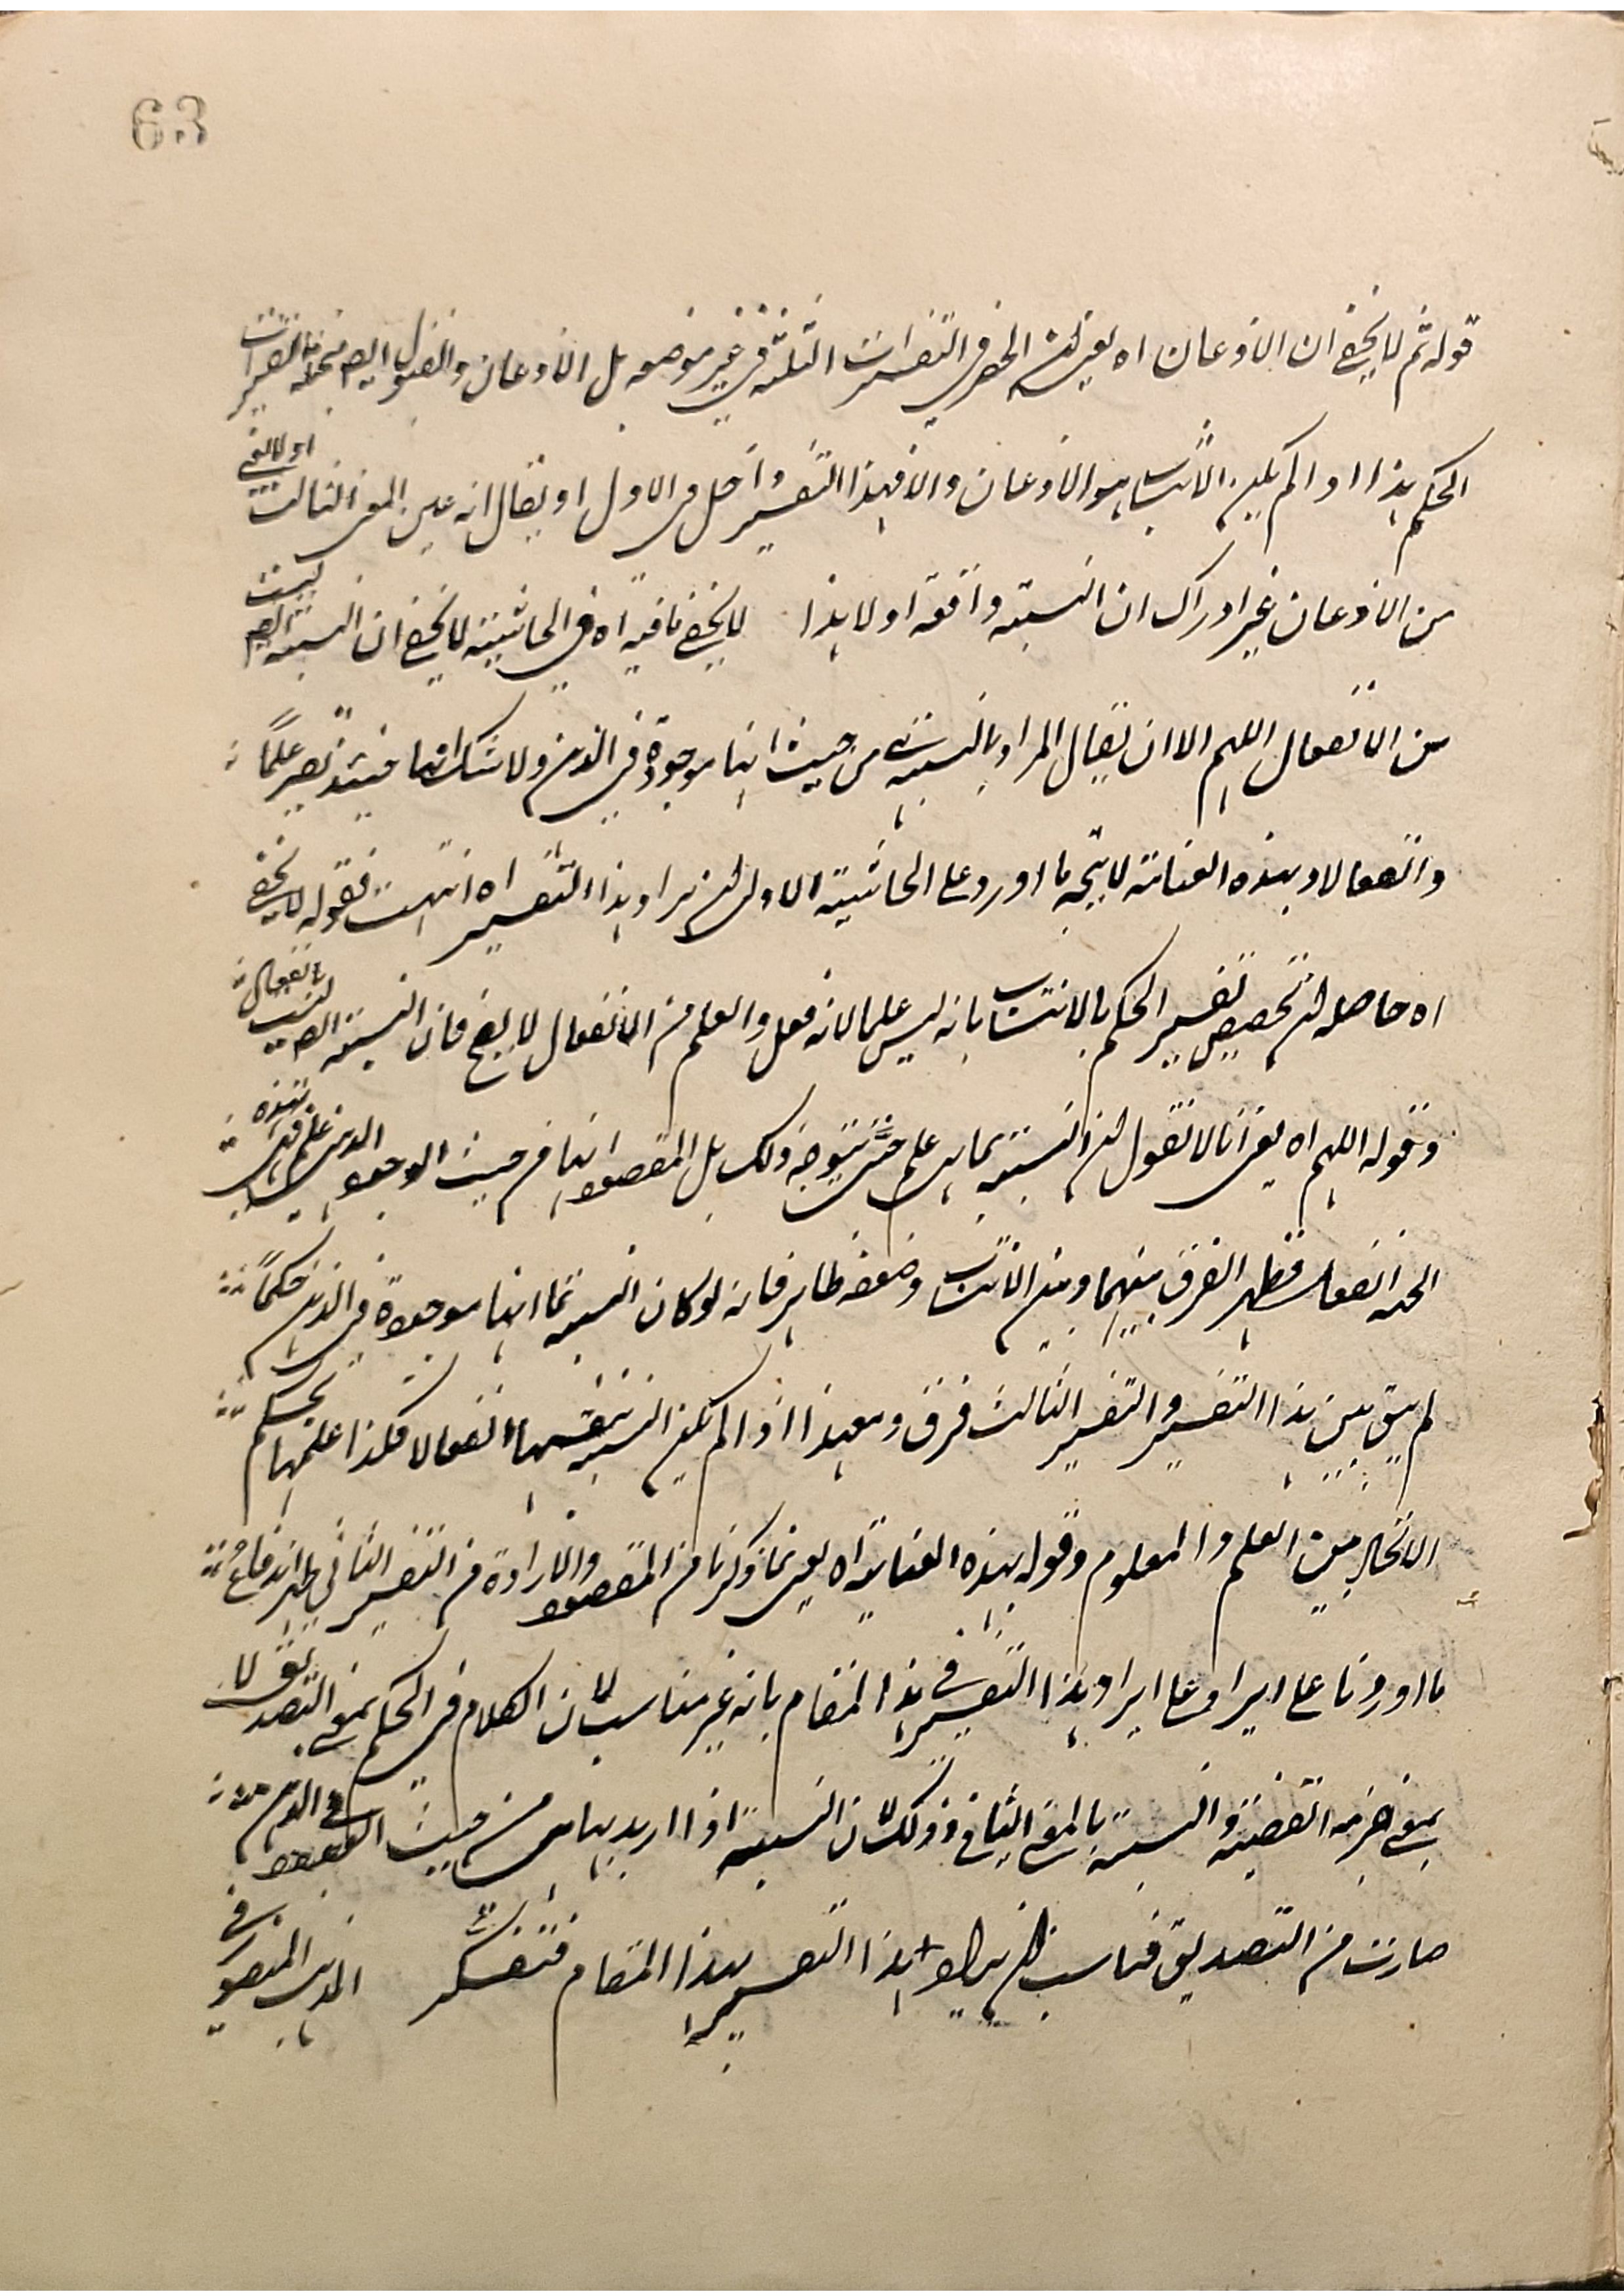 63
قوله ثم لا يخفى ان الاذعان اه يعنى ان الحصر فى التفسيرات الثلثة فى غير موضعه بل الاذعان والقبول ايضا من جملة تفسيرات
الحكم هذا اذا لم يكن الانتساب هو الاذعان والا فهذا التفسير داخل فى الاول او يقال انه عين المعنى الثالث اذ لا نعنى
من الاذعان غير ادراك ان النسبة واقعة او لا هذا لا يخفى ما فيه اه فى الحاشية لا يخفى ان النسبة ايضا ليست
من الانفعال اللهم الا ان يقال المراد بالنسبة هى من حيث انها موجودة فى الذهن ولا شك انها حينئذ تصير علما
وانفعالا وبهذه العناية لا يتجه ما اورد على الحاشية الاولى من ايراد هذا التفسير اه انتهت فقوله لا يخفى
اه حاصله ان تخصيص تفسير الحكم بالانتساب بانه ليس علما لانه فعل والعلم من الانفعال لا يصح فان النسبة ايضا ليست بانفعال
وقوله اللهم اه يعنى انا لا نقول ان النسبة بما هى علم حتى يتوجه ذلك بل المقصود انها من حيث الوجود الذهنى علم فهى بهذه
الحيثية انفعال فظهر الفرق بينهما وبين الانتساب وضعفه ظاهر فانه لو كان النسبة بما انها موجودة فى الذهن حكما
لم يبق بين هذا التفسير والتفسير الثالث فرق ومع هذا اذا لم يكن النسبة بنفسها انفعالا فكذا علمها بحكم
الاتحاد بين العلم والمعلوم وقوله بهذه العناية اه يعنى بما ذكرنا من المقصود والارادة من التفسير الثانى ظهر اندفاع
ما اوردنا على ايراد هذا التفسير فى هذا المقام بانه غير مناسب لان الكلام فى الحكم بمعنى التصديق لا
بمعنى جزء القضية والنسبة بالمعنى الثانى وذلك لان النسبة اذا اريد بها هى من حيث الوجود فى الذهن
صارت من التصديق فناسب ايراد هذا التفسير بهذا المقام فتفكر